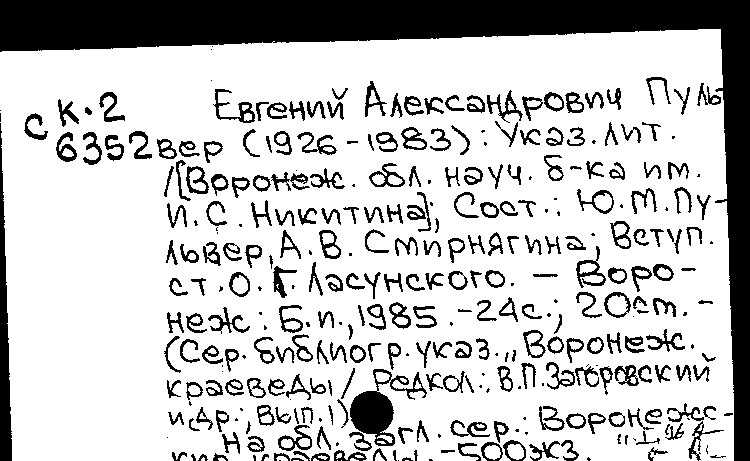 с К.2 Евгений Александрович Пуль-
6352 вер (1926-1983): Указ. лит.
/[Воронеж. обл. науч. б-ка им.
И.С. Никитина]; Сост.: Ю.М. Пу-
львер, А.В. Смирнягина; Вступ.
ст. О.Г. Ласунского. — Воро-
неж: Б.и., 1985. -24с.; 20см. -
(Сер. библиогр. указ. „Воронеж.
краеведы / Редкол.: В.П. Загоровский
и др.; Вып. 1)
На обл. загл. сер.: Воронежс-
кие краеведы. -500экз.